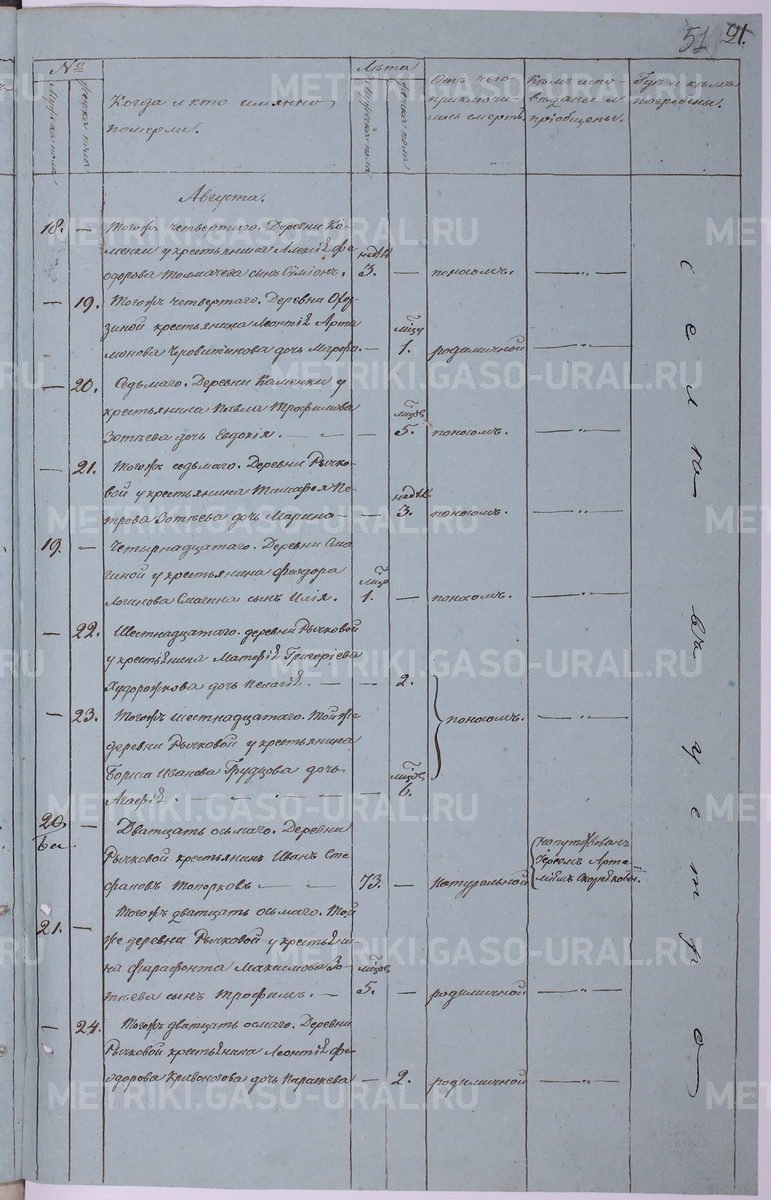 51 21.
№
Лѣта
Мужска пола
Женска пола
Когда и кто имянно
померли.
Мужска пола
Женска пола
Отъ чего
приключи-
лась смерть.
Кѣмъ испо-
вѣданы и
приобщены.
Гдѣ и кѣмъ
погребены.
Августа.
18. — Тогожъ четвертаго. Деревни Ка-
менки у крестьянина Алексѣя Фе-
дорова Толмачева сынъ Симіонъ. недѣл. 3. — поносомъ. — „ —
— 19. Тогожъ четвертаго. Деревни
крестьянина Леонтія Арта-
монова дочь Марфа. — 1. родимичной — „ —
— 20. Седьмаго. Деревни Каменки у
крестьянина Павла Трофимова
Зотѣева дочь Евдокія. — — — мѣсяцов 5. поносомъ. — „ —
— 21. Тогожъ седьмаго. Деревни Рычко-
вой у крестьянина Тимофея Пе-
трова Зотѣева дочь Марина — — недѣл. 3. поносомъ. — „ —
19. — Четырнадцатаго. Деревни Сма-
гиной у крестьянина Феодора
Логинова Смагина сынъ Илія. 1. — поносомъ. — „ —
— 22. Шестнадцатаго. деревни Рычковой
у крестьянина Матфія Григоріева
Худорожкова дочь Пелагія. — — 2.
— 23. Тогожъ шестнадцатаго. Той же
деревни Рычковой у крестьянина
Бориса Иванова Трудцова дочь
Агафія. — — — — — 6.
поносомъ. — „ —
20 — Дватцать осьмаго. Деревни
Рычковой крестьянинъ Иванъ Сте-
фановъ Топорковъ — — 73. — натуральной
Напутствованъ
Іереемъ Арте-
міемъ
21. — Тогожъ дватцать осьмаго. Той
же деревни Рычковой у крестьяни-
на Фарафонта Максимова Зо-
тѣева сынъ Трофимъ. — 5. — родимичной. — „ —
— 24. Тогожъ дватцать осмаго. Деревни
Рычковой крестьянина Леонтія Фе-
одорова Кривоногова дочь Параскева — 2. родимичной — „ —
METRIKI.GASO-URAL.RU